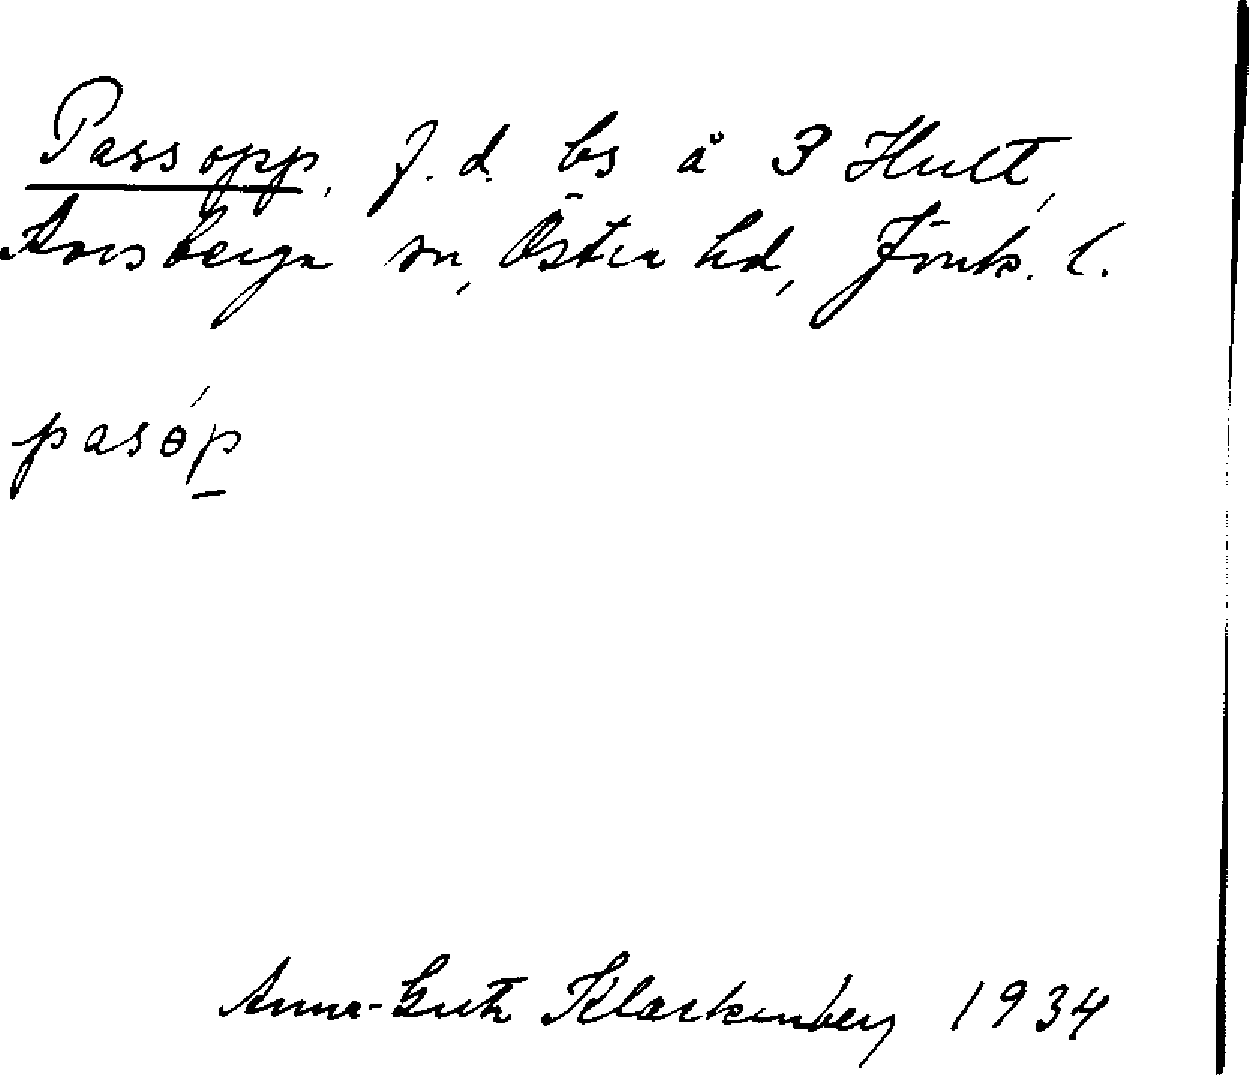 Passopp, f. d. bs å 3 Hult,
Almesåkra sn, Östra hd, Jönk. l.
pasóp
Anna-Greta Klackenberg 1934